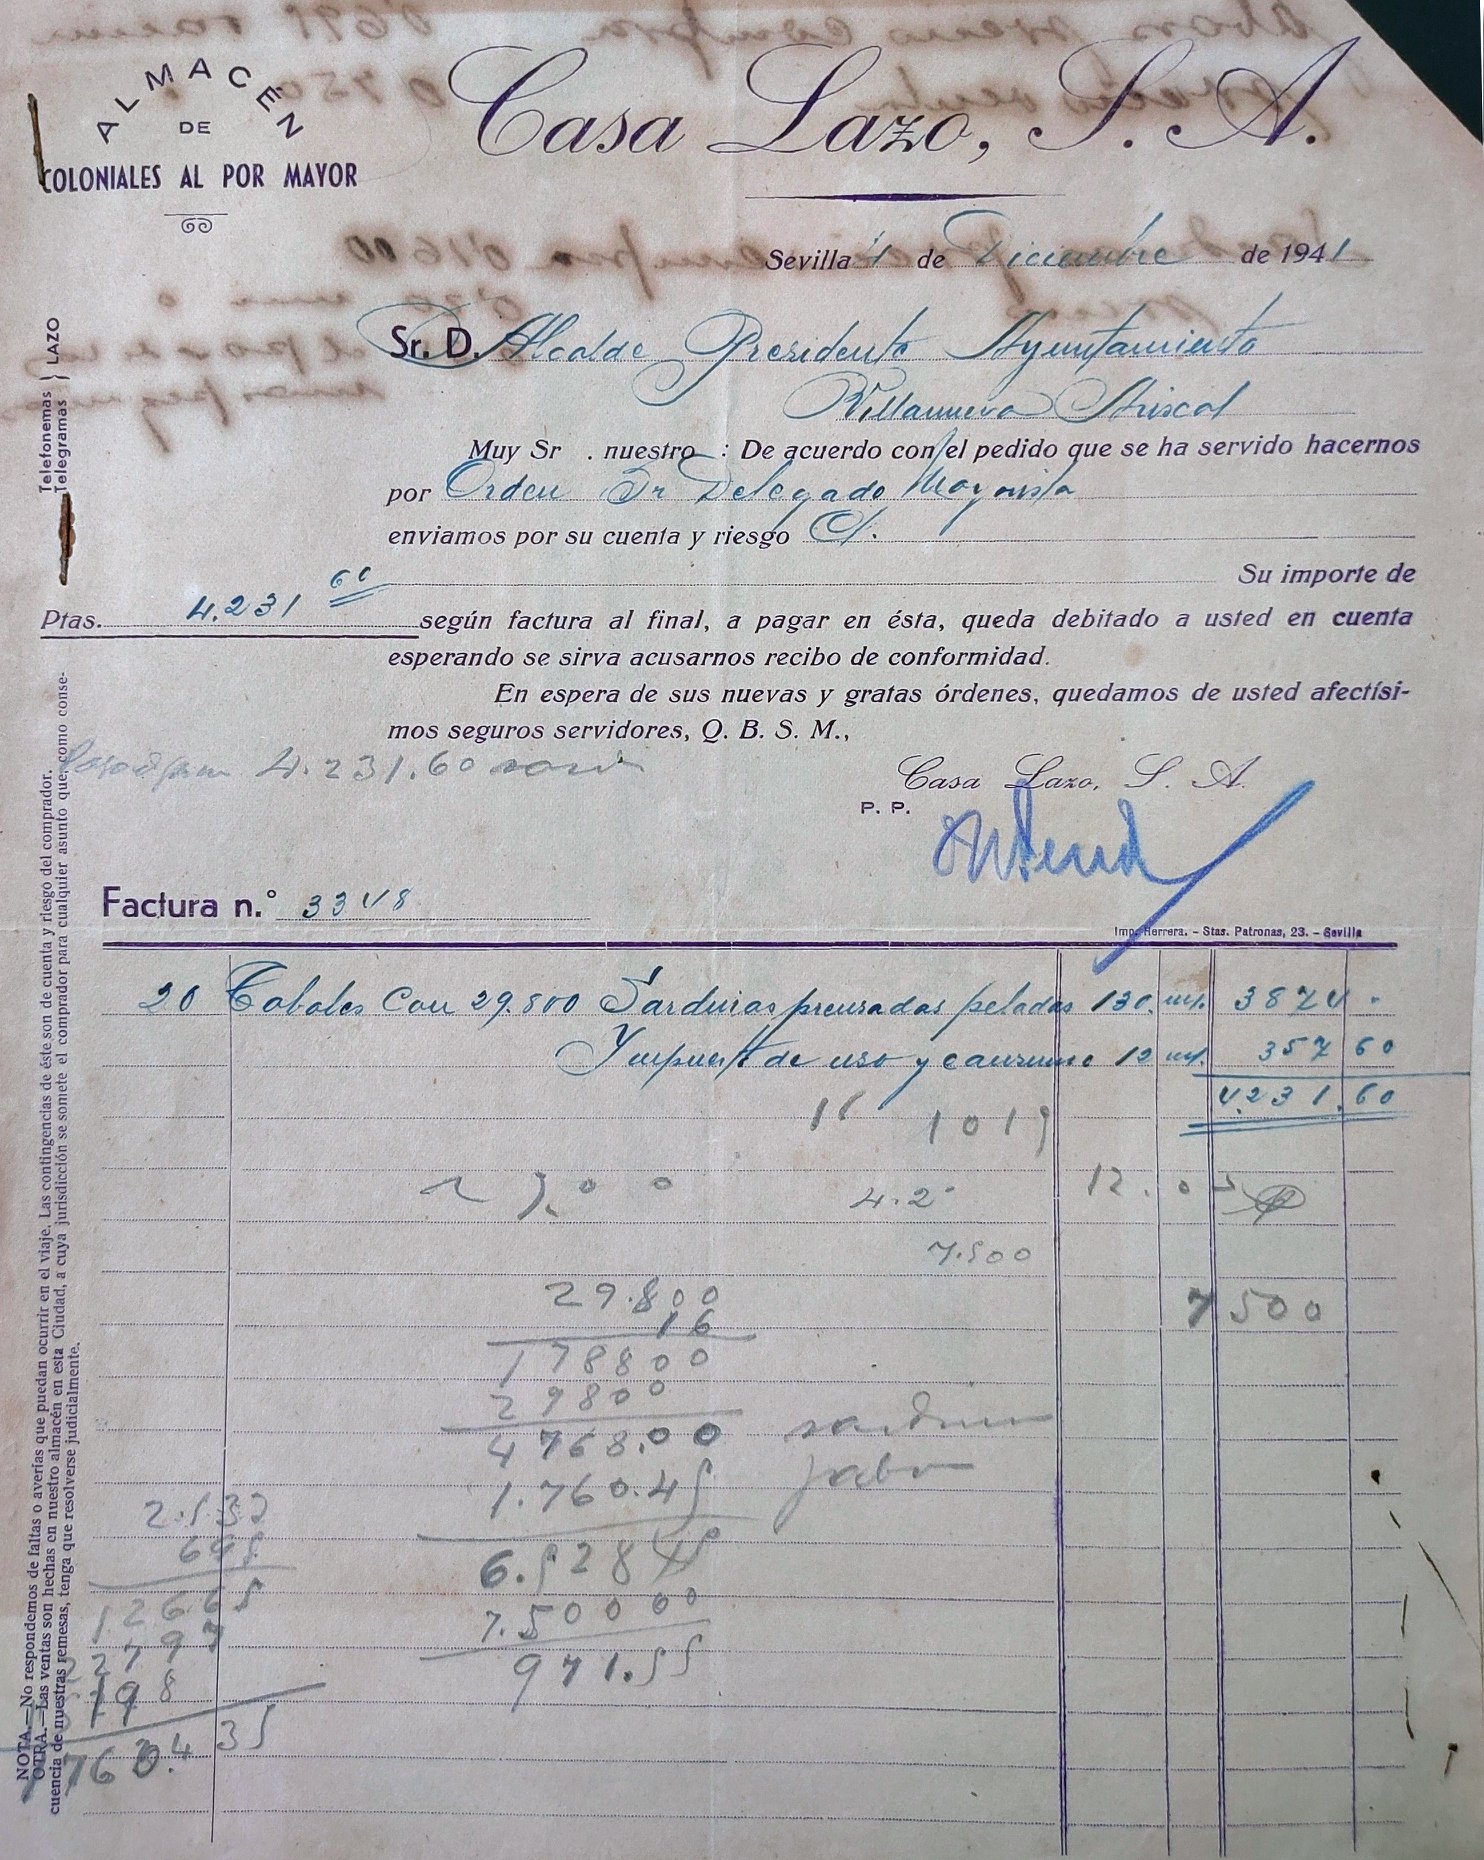 ALMACÉN
DE
COLONIALES AL POR MAYOR
Casa Lazo, S. A.
Sevilla 1 de Diciembre de 1941
Telefonemas } LAZO
Telegramas
Sr. D. Alcalde Presidente Ayuntamiento
Villanueva Ariscal
Muy Sr . nuestro : De acuerdo con el pedido que se ha servido hacernos
por Orden Sr Delegado Mayorista
enviamos por su cuenta y riesgo
Su importe de
Ptas. 4.231 60 según factura al final, a pagar en ésta, queda debitado a usted en cuenta
esperando se sirva acusarnos recibo de conformidad.
En espera de sus nuevas y gratas órdenes, quedamos de usted afectísi-
mos seguros servidores, Q. B. S. M.,
4.231.60
Casa Lazo, S. A.
P. P.
Factura n.° 3348
Imp. Herrera. - Stas. Patronas, 23. - Sevilla
20 Tabales Con 29.800 Sardinas prensadas peladas 130. m/. 3874 -
Impuesto de uso y consumo 12 m/. 357 60
4.231.60
16 1019
4.2
12.0
7.500
29.800
7500
16
178800
29800
4768.00 sardinas
1.760.45 jabon
6.528 45
7.500 00
971.55
2.532
695
12665
22797
4 35
NOTA.—No respondemos de faltas o averías que puedan ocurrir en el viaje. Las contingencias de éste son de cuenta y riesgo del comprador.
OTRA.—Las ventas son hechas en nuestro almacén en esta Ciudad, a cuya jurisdicción se somete el comprador para cualquier asunto que, como conse-
cuencia de nuestras remesas, tenga que resolverse judicialmente.